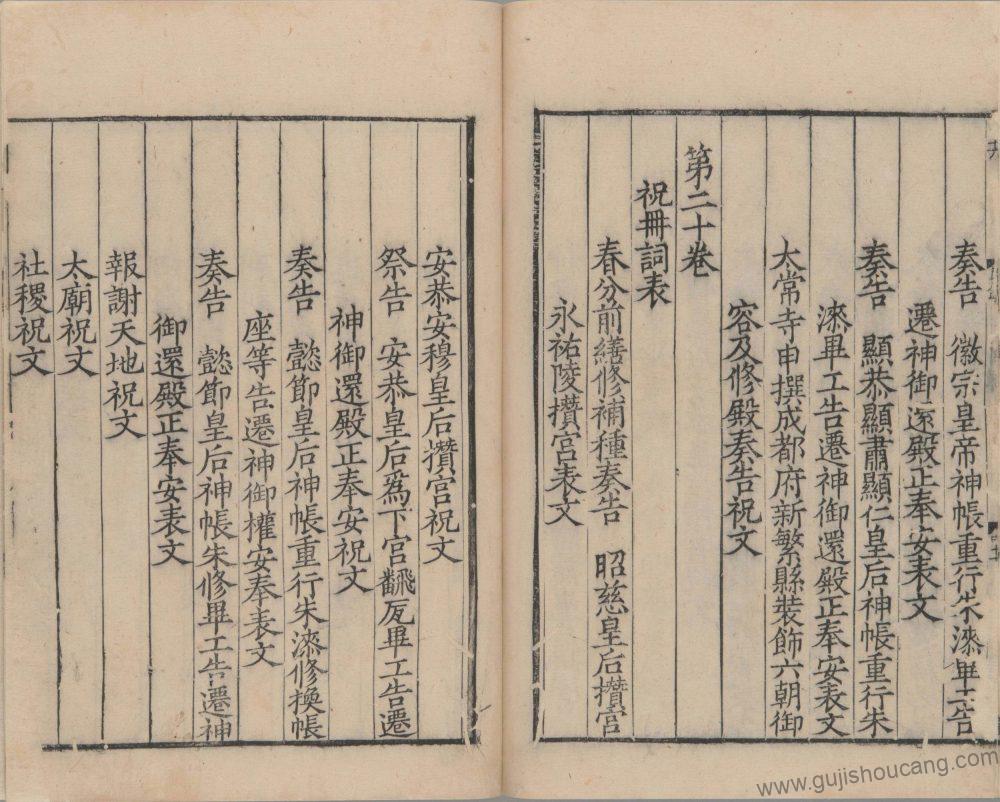 奏告　徽宗皇帝神帳重行朱漆畢工告
遷神御還殿正奉安表文
奏告　顯恭顯肅顯仁皇后神帳重行朱
漆畢工告遷神御還殿正奉安表文
太常寺申撰成都府新繁縣裝飾六朝御
容及修殿奏告祝文
第二十卷
祝冊詞表
春分前繕修補種奏告　昭慈皇后攢宮
永祐陵攢宮表文
安恭安穆皇后攢宮祝文
祭告　安恭皇后爲下宮飜瓦畢工告遷
神御還殿正奉安祝文
奏告　懿節皇后神帳重行朱漆修換帳
座等告遷神御權安奉表文
奏告　懿節皇后神帳朱修畢工告遷神
御還殿正奉安表文
報謝天地祝文
太廟祝文
社稷祝文
www.gujishoucang.com